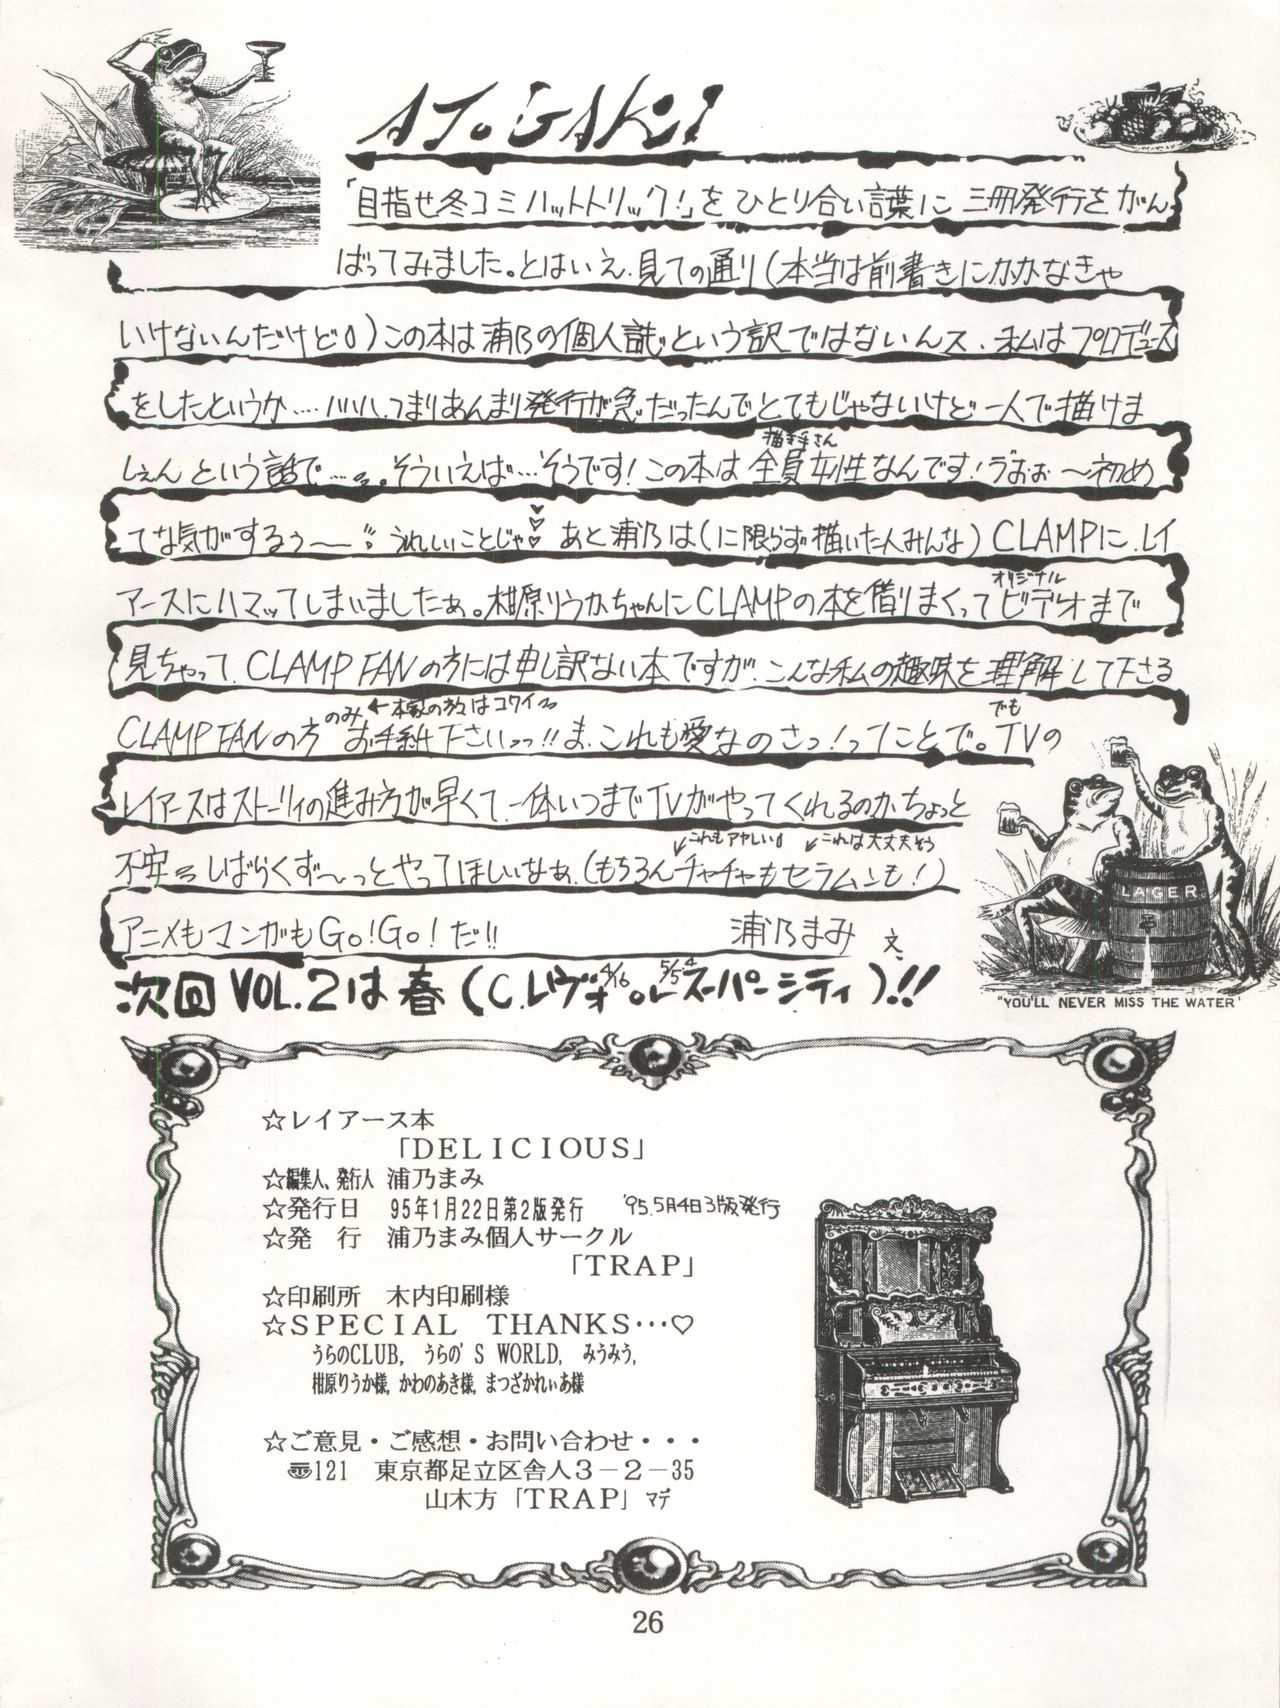 ATOGAKI
「目指せ冬コミハットトリック!」をひとり合い言葉に 三冊発行をがん
ばってみました。とはいえ、見ての通り(本当は前書きにかかなきゃ
いけないんだけど)この本は浦乃の個人誌という訳ではないんス、私はプロデュース
をしたというか……ハハハ、つまりあんまり発行が急だったんでとてもじゃないけど一人で描けま
しぇんという話で……。そういえば…そうです!この本は全員女性なんです!うおぉ〜初め
描き手さん
てな気がするぅ〜 うれしいことじゃ♡♡ あと浦乃は(に限らず描いた人みんな)CLAMPに、レイ
アースにハマッてしまいましたぁ。柑原りうかちゃんにCLAMPの本を借りまくってビデオまで
オリジナル
見ちゃって、CLAMP FANの方には申し訳ない本ですが、こんな私の趣味を理解して下さる
CLAMP FANの方 お手紙下さいっっ!!ま、これも愛なのさっ!ってことで。TVの
のみ←本家の方はコワイ
でも
レイアースはストーリィの進み方が早くて、一体いつまでTVがやってくれるのか、ちょっと
不安 しばらくず〜っとやってほしいなぁ、(もちろんチャチャもセラムンも!)
これもアヤしい
これは大丈夫そう
アニメもマンガもGo!Go!だ!! 浦乃まみ 文
次回VOL.2は春(C.レヴォ 4/16 or 5/5 4 スーパーシティ)!!
LAGER
"YOU'LL NEVER MISS THE WATER"
☆レイアース本
「DELICIOUS」
☆編集人、発行人 浦乃まみ
☆発行日 95年1月22日第2版発行 '95.5月4日3版発行
☆発 行 浦乃まみ個人サークル
「TRAP」
☆印刷所 木内印刷様
☆SPECIAL THANKS…♡
うらのCLUB, うらの'S WORLD, みうみう,
柑原りうか様, かわのあき様, まつざかれぃあ様
☆ご意見・ご感想・お問い合わせ・・・
〠121 東京都足立区舎人3-2-35
山木方「TRAP」マデ
26